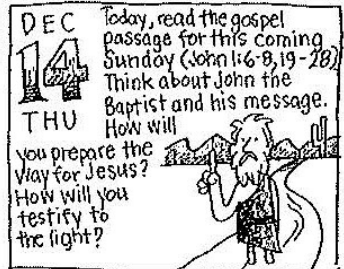 DEC
14
THU
Today, read the gospel
passage for this coming
Sunday (John 1:6-8, 19-28).
Think about John the
Baptist and his message.
How will
you prepare the
way for Jesus?
How will you
testify to
the light?